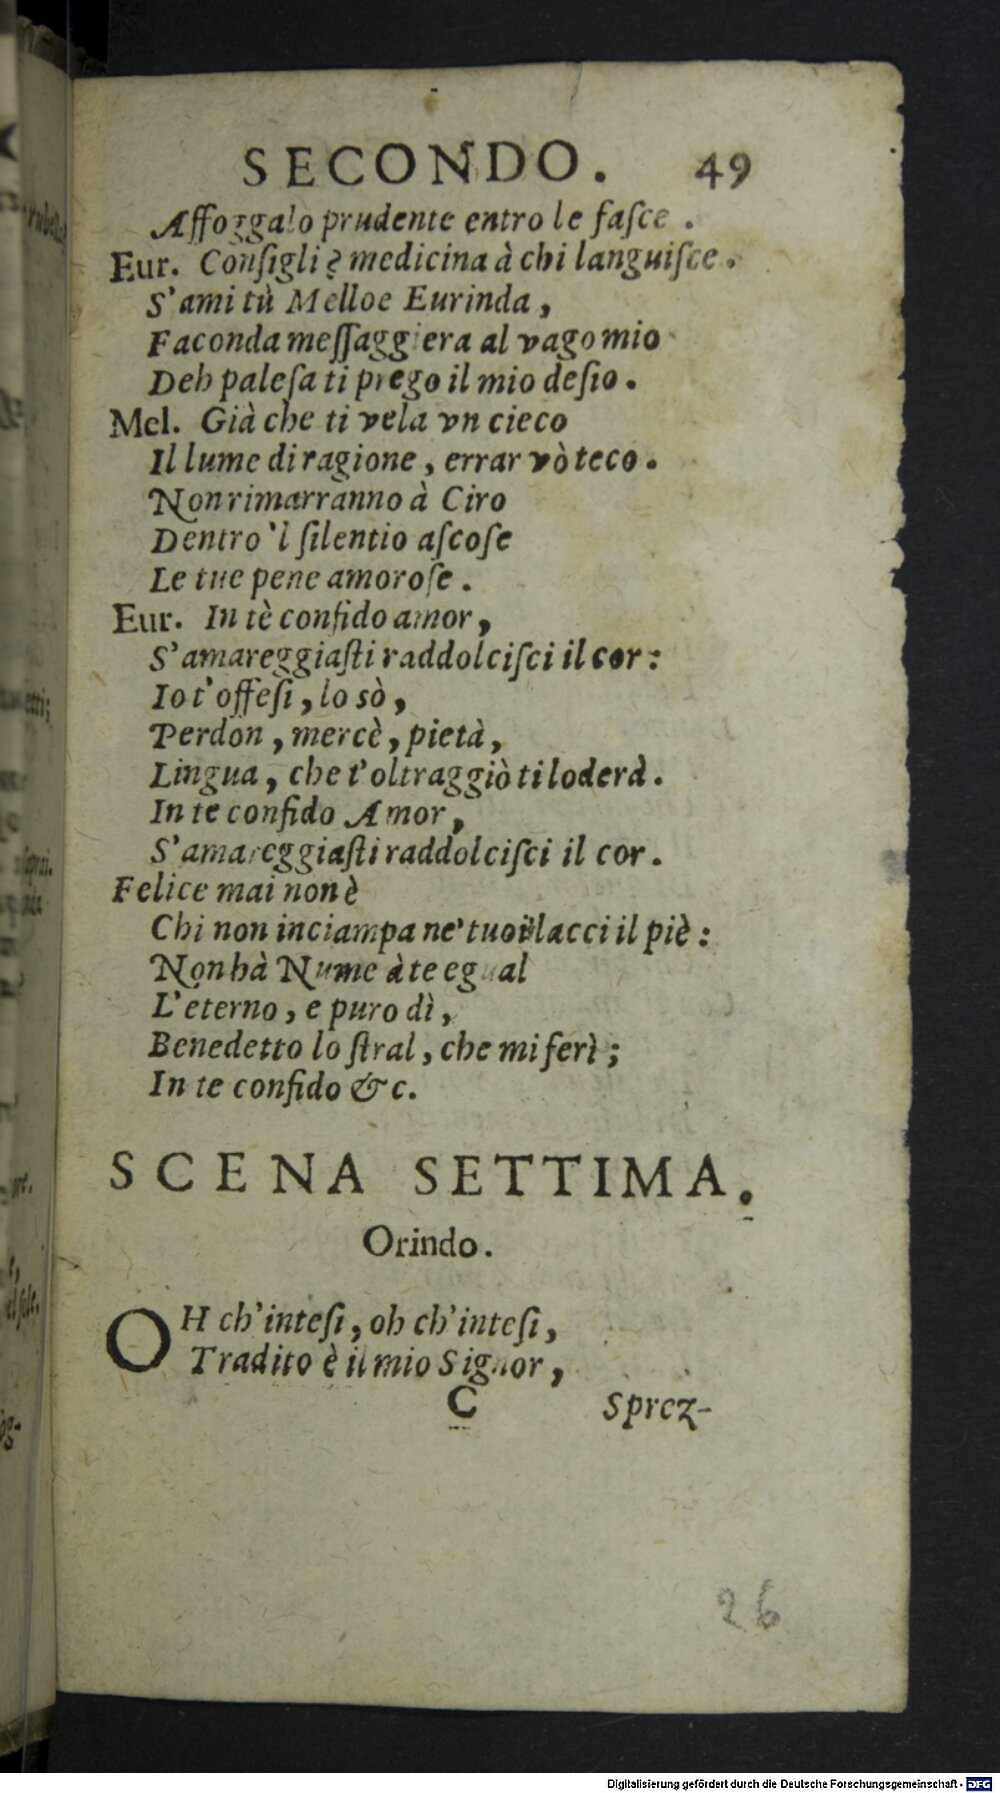 SECONDO. 49
Affoggalo prudente entro le faſce.
Eur. Conſigli è medicina à chi languiſce.
S'ami tù Melloe Eurinda,
Faconda meſſaggiera al vago mio
Deh paleſa ti prego il mio deſio.
Mel. Già che ti vela vn cieco
Il lume di ragione, errar vò teco.
Non rimarranno à Ciro
Dentro 'l ſilentio aſcoſe
Le tue pene amoroſe.
Eur. In tè confido amor,
S'amareggiaſti raddolciſci il cor:
Io t'offeſi, lo sò,
Perdon, mercè, pietà,
Lingua, che t'oltraggiò ti loderà.
In te confido Amor,
S'amareggiaſti raddolciſci il cor.
Felice mai non è
Chi non inciampa ne' tuoi lacci il piè:
Non hà Nume à te egual
L'eterno, e puro dì,
Benedetto lo ſtral, che mi ferì;
In te confido &c.
SCENA SETTIMA.
Orindo.
OH ch'inteſi, oh ch'inteſi,
Tradito è il mio Signor,
C Sprez-
26
Digitalisierung gefördert durch die Deutsche Forschungsgemeinschaft - DFG